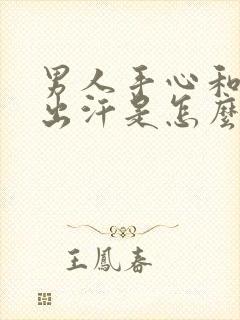 男人手心和
出汗是怎麼
王鳳春